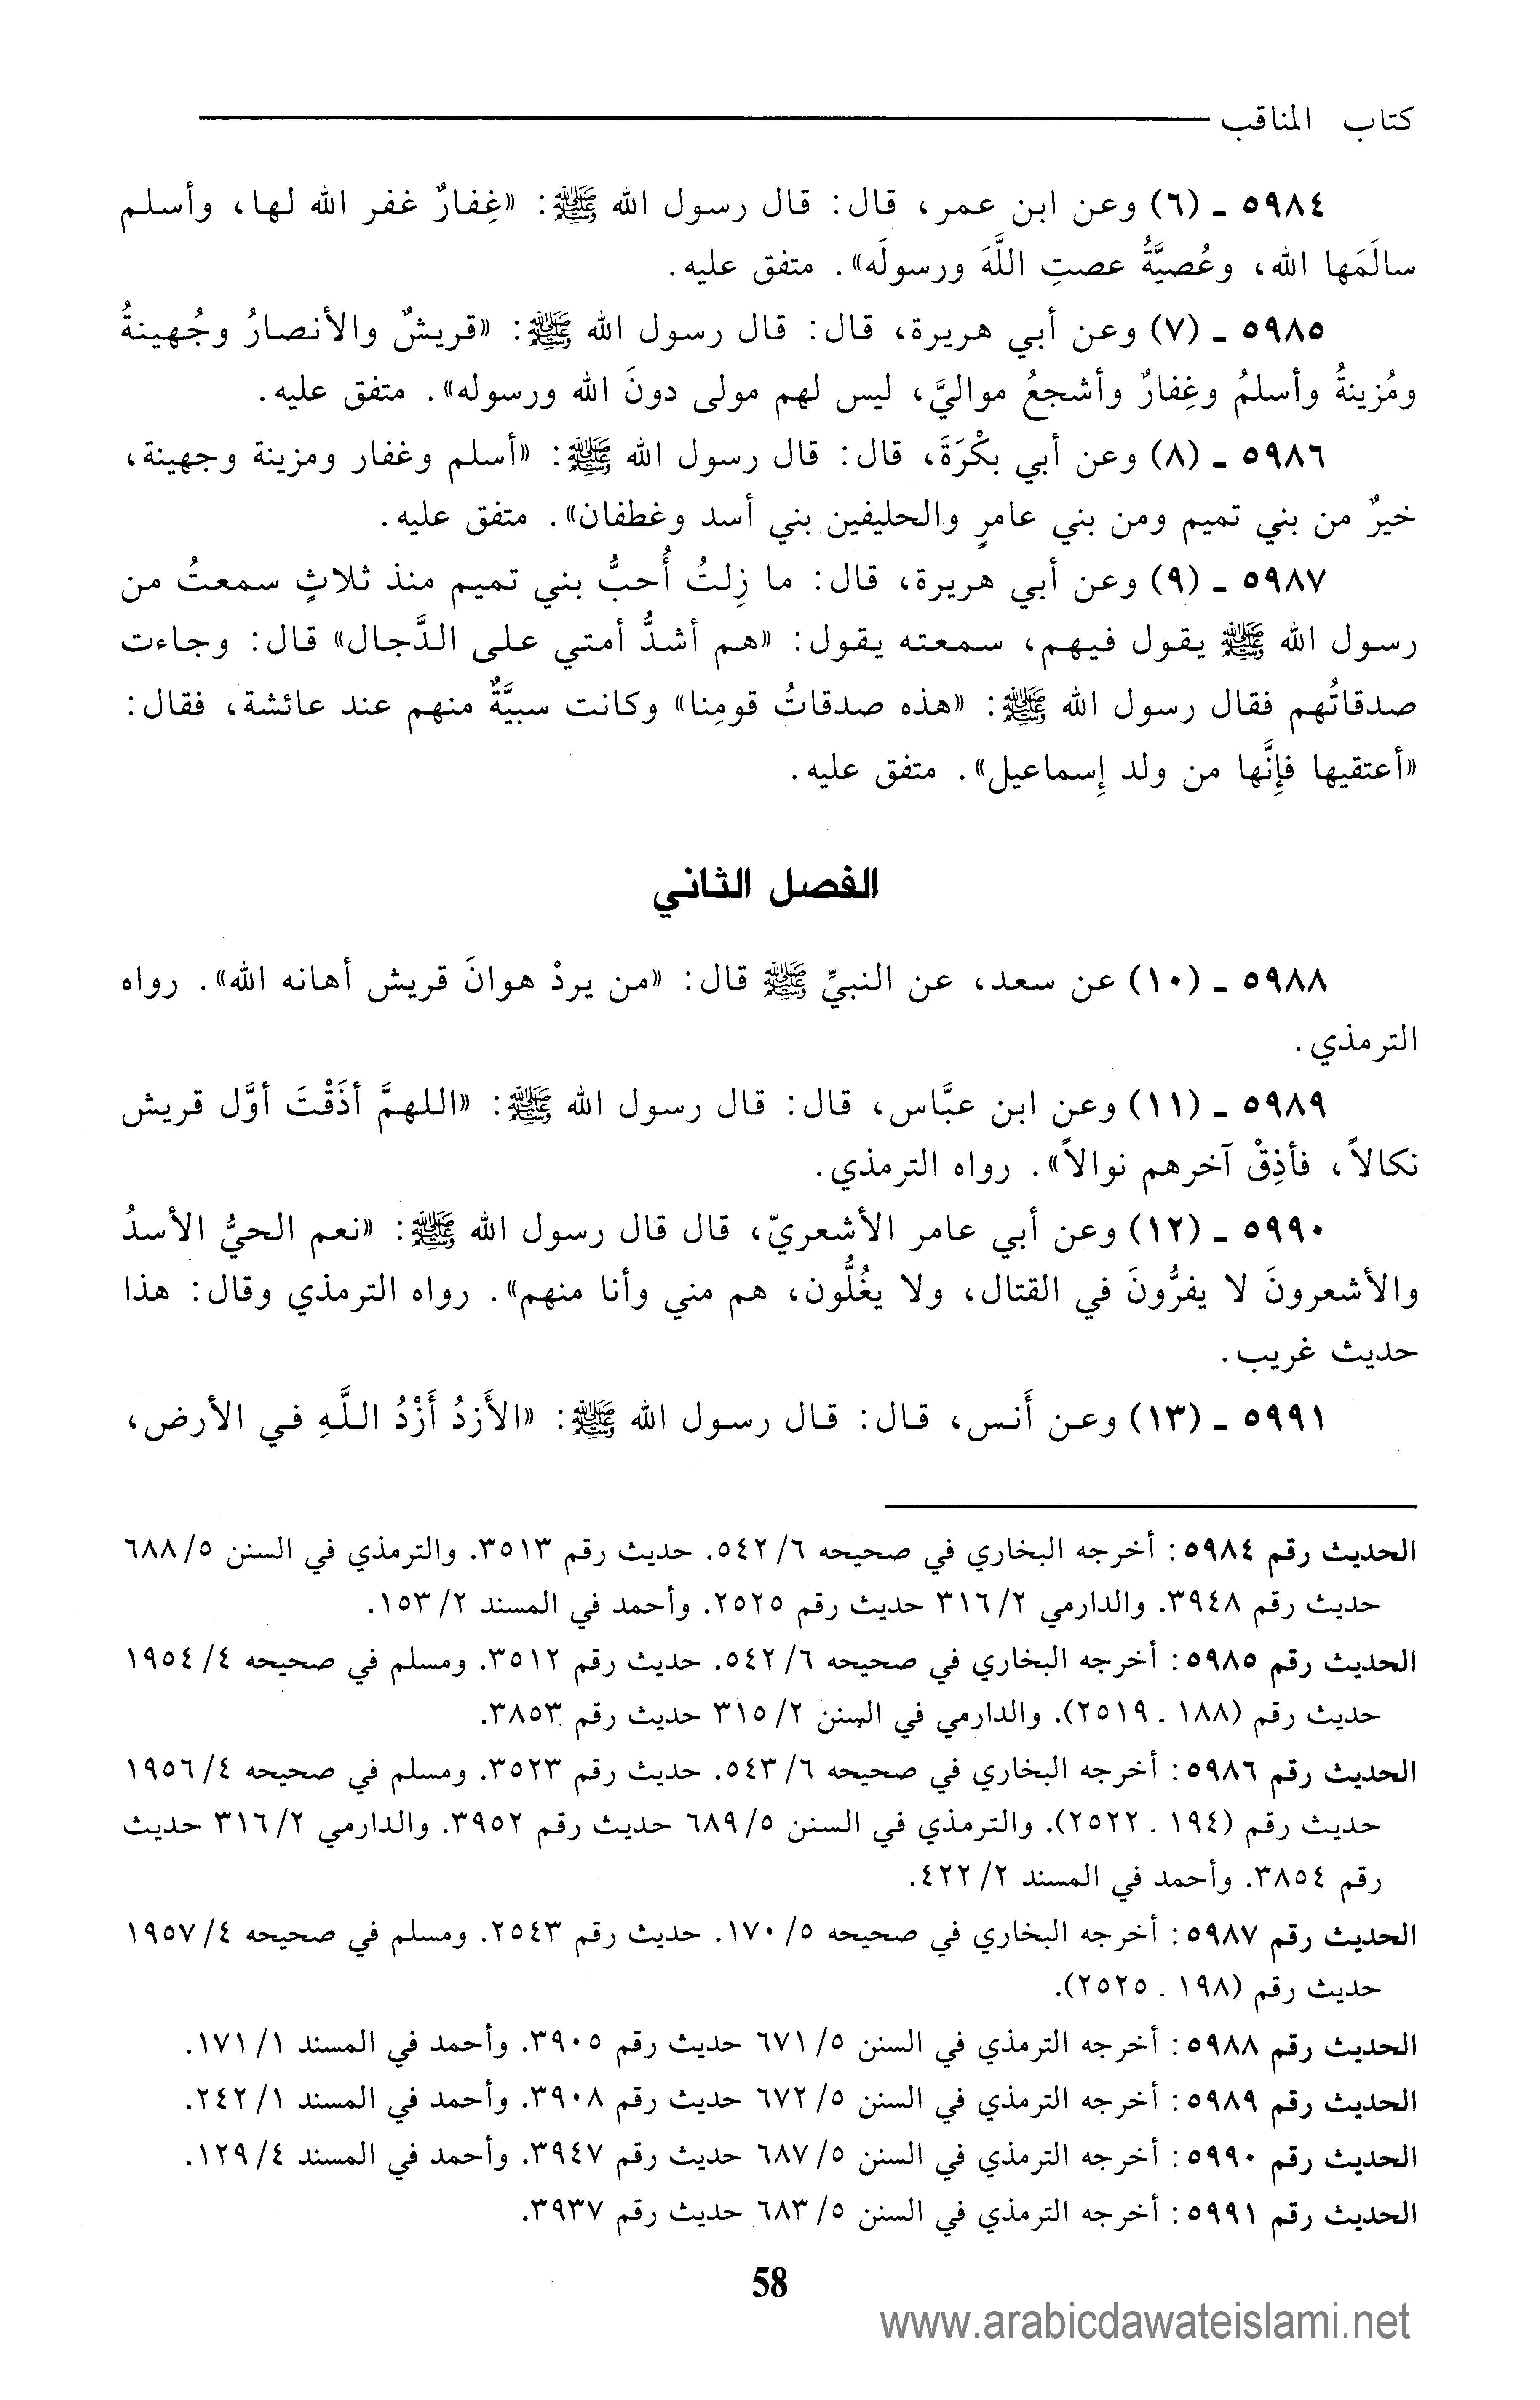 كتاب المناقب
٥٩٨٤ ـ (٦) وعن ابن عمر، قال: قال رسول الله ﷺ: «غِفارٌ غفر الله لها، وأسلم
سالَمَها الله، وعُصيَّةُ عصتِ اللَّهَ ورسولَه». متفق عليه.
٥٩٨٥ ـ (٧) وعن أبي هريرة، قال: قال رسول الله ﷺ: «قريشٌ والأنصارُ وجُهينةُ
ومُزينةُ وأسلمُ وغِفارٌ وأشجعُ مواليَّ، ليس لهم مولى دونَ الله ورسوله». متفق عليه.
٥٩٨٦ ـ (٨) وعن أبي بكْرَةَ، قال: قال رسول الله ﷺ: «أسلم وغفار ومزينة وجهينة،
خيرٌ من بني تميم ومن بني عامرٍ والحليفين بني أسد وغطفان». متفق عليه.
٥٩٨٧ ـ (٩) وعن أبي هريرة، قال: ما زِلتُ أُحبُّ بني تميم منذ ثلاثٍ سمعتُ من
رسول الله ﷺ يقول فيهم، سمعته يقول: «هم أشدُّ أمتي على الدَّجال» قال: وجاءت
صدقاتُهم فقال رسول الله ﷺ: «هذه صدقاتُ قومِنا» وكانت سبيَّةٌ منهم عند عائشة، فقال:
«أعتقيها فإِنَّها من ولد إِسماعيل». متفق عليه.
الفصل الثاني
٥٩٨٨ ـ (١٠) عن سعد، عن النبيِّ ﷺ قال: «من يردْ هوانَ قريش أهانه الله». رواه
الترمذي.
٥٩٨٩ ـ (١١) وعن ابن عبَّاس، قال: قال رسول الله ﷺ: «اللهمَّ أذَقْتَ أوَّل قريش
نكالاً، فأذِقْ آخرهم نوالاً». رواه الترمذي.
٥٩٩٠ ـ (١٢) وعن أبي عامر الأشعريّ، قال قال رسول الله ﷺ: «نعم الحيُّ الأسدُ
والأشعرونَ لا يفرُّونَ في القتال، ولا يغُلُّون، هم مني وأنا منهم». رواه الترمذي وقال: هذا
حديث غريب.
٥٩٩١ ـ (١٣) وعن أَنس، قال: قال رسول الله ﷺ: «الأَزدُ أَزْدُ اللَّهِ في الأرض،
الحديث رقم ٥٩٨٤: أخرجه البخاري في صحيحه ٦/ ٥٤٢. حديث رقم ٣٥١٣. والترمذي في السنن ٥/ ٦٨٨
حديث رقم ٣٩٤٨. والدارمي ٢/ ٣١٦ حديث رقم ٢٥٢٥. وأحمد في المسند ٢/ ١٥٣.
الحديث رقم ٥٩٨٥: أخرجه البخاري في صحيحه ٦/ ٥٤٢. حديث رقم ٣٥١٢. ومسلم في صحيحه ٤/ ١٩٥٤
حديث رقم (١٨٨ ـ ٢٥١٩). والدارمي في السنن ٢/ ٣١٥ حديث رقم ٣٨٥٣.
الحديث رقم ٥٩٨٦: أخرجه البخاري في صحيحه ٦/ ٥٤٣. حديث رقم ٣٥٢٣. ومسلم في صحيحه ٤/ ١٩٥٦
حديث رقم (١٩٤ ـ ٢٥٢٢). والترمذي في السنن ٥/ ٦٨٩ حديث رقم ٣٩٥٢. والدارمي ٢/ ٣١٦ حديث
رقم ٣٨٥٤. وأحمد في المسند ٢/ ٤٢٢.
الحديث رقم ٥٩٨٧: أخرجه البخاري في صحيحه ٥/ ١٧٠. حديث رقم ٢٥٤٣. ومسلم في صحيحه ٤/ ١٩٥٧
حديث رقم (١٩٨ ـ ٢٥٢٥).
الحديث رقم ٥٩٨٨: أخرجه الترمذي في السنن ٥/ ٦٧١ حديث رقم ٣٩٠٥. وأحمد في المسند ١/ ١٧١.
الحديث رقم ٥٩٨٩: أخرجه الترمذي في السنن ٥/ ٦٧٢ حديث رقم ٣٩٠٨. وأحمد في المسند ١/ ٢٤٢.
الحديث رقم ٥٩٩٠: أخرجه الترمذي في السنن ٥/ ٦٨٧ حديث رقم ٣٩٤٧. وأحمد في المسند ٤/ ١٢٩.
الحديث رقم ٥٩٩١: أخرجه الترمذي في السنن ٥/ ٦٨٣ حديث رقم ٣٩٣٧.
58
www.arabicdawateislami.net